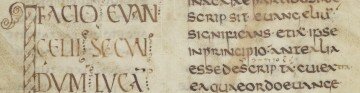 FACIO EVAN
GELII SECUN
DUM LUCA
SCRIPSIT EUANGELIU
SIGNIFICANS IPSE
INPRINCIPIO ANTEALIA
ESSE DESCRIPTA CUIEX
EAQUAEORDOEUANGE